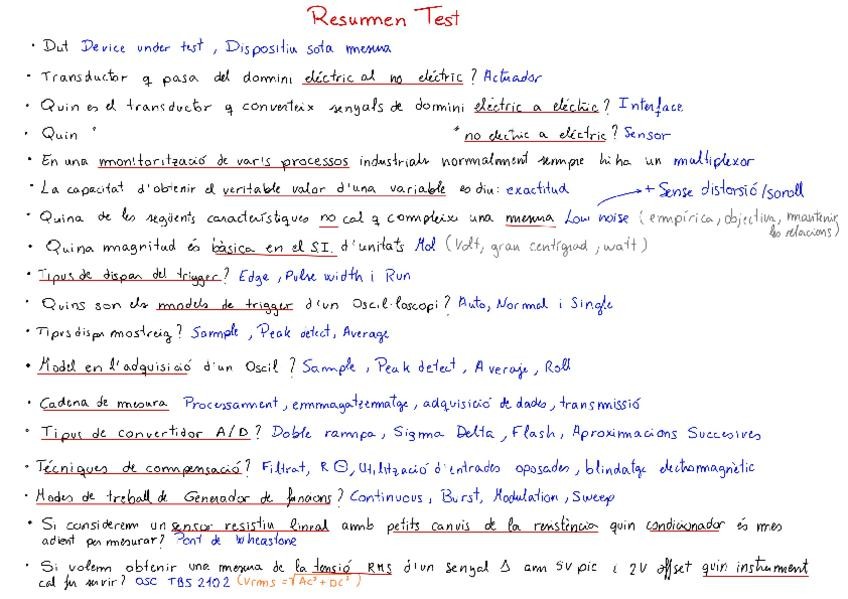 Resumen Test
· Dut Device under test, Dispositiu sota mesura
· Transductor q pasa del domini eléctric al no eléctric? Actuador
· Quin es el transductor q converteix senyals de domini eléctric a eléctric? Interface
· Quin " " no electric a eléctric? Sensor
· En una monitorització de varis processos industrials normalment sempre hi ha un multiplexor
· La capacitat d'obtenir el veritable valor d'una variable es diu: exactitud → + Sense distorsió/soroll
· Quina de les següents característiques no cal q compleixi una mesura Low noise (empírica, objectiva, mantenir les relacions)
· Quina magnitud és bàsica en el S.I. d'unitats Mol (Volt, grau centigrad, watt)
· Tipus de dispar del trigger? Edge, Pulse width i Run
· Quins son els models de trigger d'un Oscil·loscopi? Auto, Normal i Single
· Tipus dispar mostreig? Sample, Peak detect, Average
· Model en l'adquisició d'un Oscil? Sample, Peak detect, Average, Roll
· Cadena de mesura Processament, emmagatzematge, adquisició de dades, transmissió
· Tipus de convertidor A/D? Doble rampa, Sigma Delta, Flash, Aproximacions Succesives
· Técniques de compensació? Filtrat, R ⊖, Utilització d'entrades oposades, blindatge electromagnètic
· Modes de treball de Generador de funcions? Continuous, Burst, Modulation, Sweep
· Si considerem un sensor resistiu lineal amb petits canvis de la resistència quin condicionador és mes
adient per mesurar? Pont de Wheastone
· Si volem obtenir una mesura de la tensió RMS d'un senyal Δ amb 5V pic i 2V offset quin instrument
cal fer servir? OSC TBS 2102 (Vrms = √Ac² + DC²)